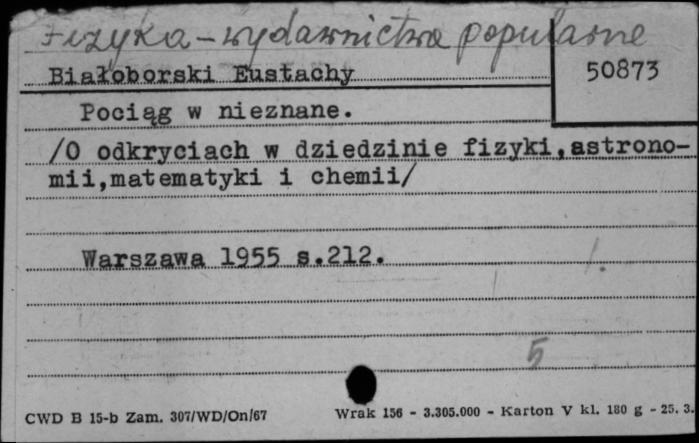 Fizyka – wydawnictwa popularne
Białoborski Eustachy
50873
Pociąg w nieznane.
/O odkryciach w dziedzinie fizyki,astrono-
mii,matematyki i chemii/
Warszawa 1955 s.212.
1.
5
CWD B 15-b Zam. 307/WD/On/67
Wrak 156 - 3.305.000 - Karton V kl. 180 g - 25. 3.